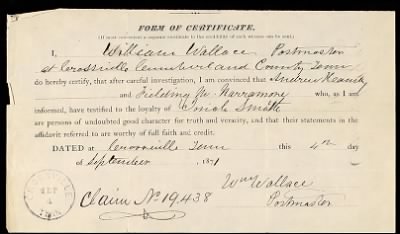 FORM OF CERTIFICATE.
(If more convenient a separate certificate to the credibility of each witness can be sent.)
I, William Wallace Postmaster
at Crossville Cumberland County Tenn
do hereby certify, that after careful investigation, I am convinced that Andrew
and Fielding M. Narramore who, as I am
informed, have testified to the loyalty of Smith
are persons of undoubted good character for truth and veracity, and that their statements in the
affidavit referred to are worthy of full faith and credit.
DATED at Crossville Tenn this 4th day
of September 1871
Wm Wallace
Claim No 19,438
Postmaster
CROSSVILLE
SEP
4
TEN.